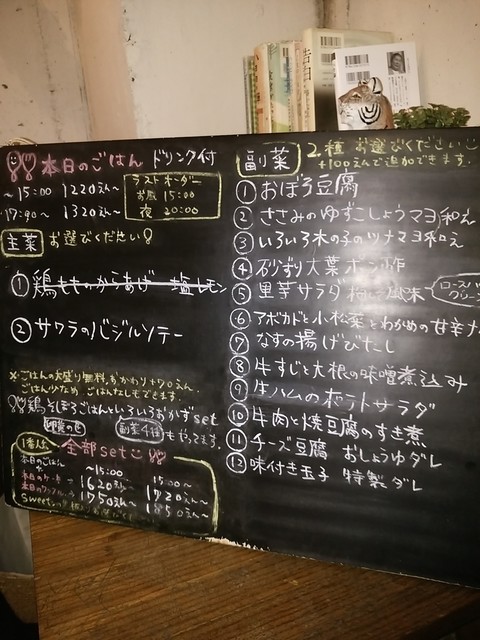 本日のごはん ドリンク付
~15:00 1220えん~
17:30~ 1320えん~
ラストオーダー
お昼 15:00
夜 20:00
主菜 お選びください!
① 鶏もものからあげ 塩レモン
② サワラのバジルソテー
※ごはんの大盛り無料、おかわり+70えん。
ごはん少なめ ごはんなしもできます。
鶏そぼろごはんといろいろおかずset
副菜4種 もやってます。
1番人気 全部set
本日のごはん
本日のケーキ
~15:00 15:00~
1620えん~ 1720えん~
1750えん~ 1850えん~
副菜 2種 お選びください
+100えんで追加できます。
① おぼろ豆腐
② ささみのゆずこしょうマヨ和え
③ いろいろ木の子のツナマヨ和え
④ 砂ずり大葉ポン酢
⑤ 里芋サラダ 風味
⑥ アボカドと小松菜とわかめの甘辛ナ
⑦ なすの揚げびたし
⑧ 牛すじと大根の味噌煮込み
⑨ 生ハムのポテトサラダ
⑩ 牛肉と焼豆腐のすき煮
⑪ チーズ豆腐 おしょうゆダレ
⑫ 味付き玉子 特製ダレ